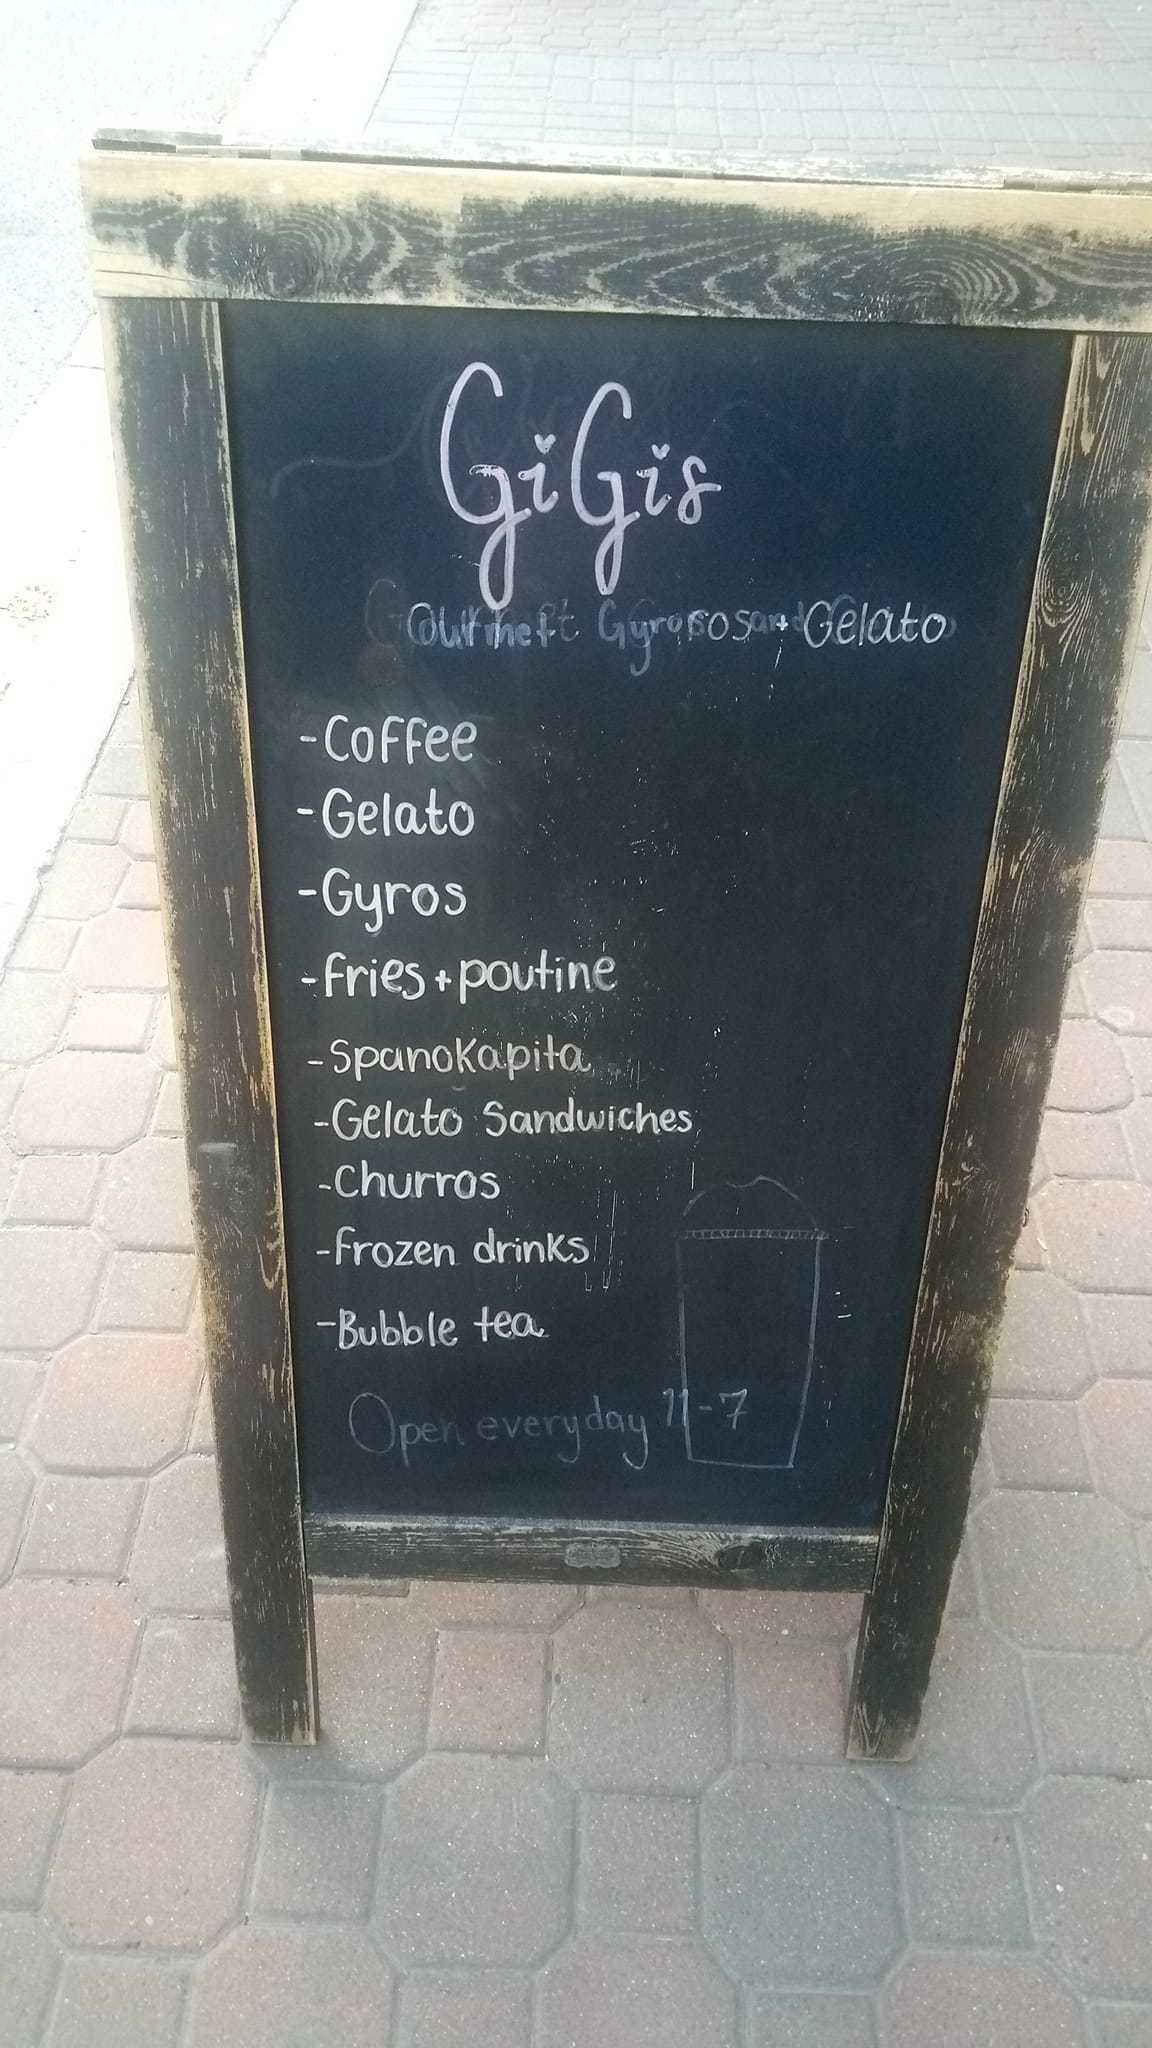 GiGis
Gourmet Gyros + Gelato
-Coffee
-Gelato
-Gyros
-Fries + poutine
-Spanokapita
-Gelato Sandwiches
-Churros
-Frozen drinks
-Bubble tea
Open everyday 11-7